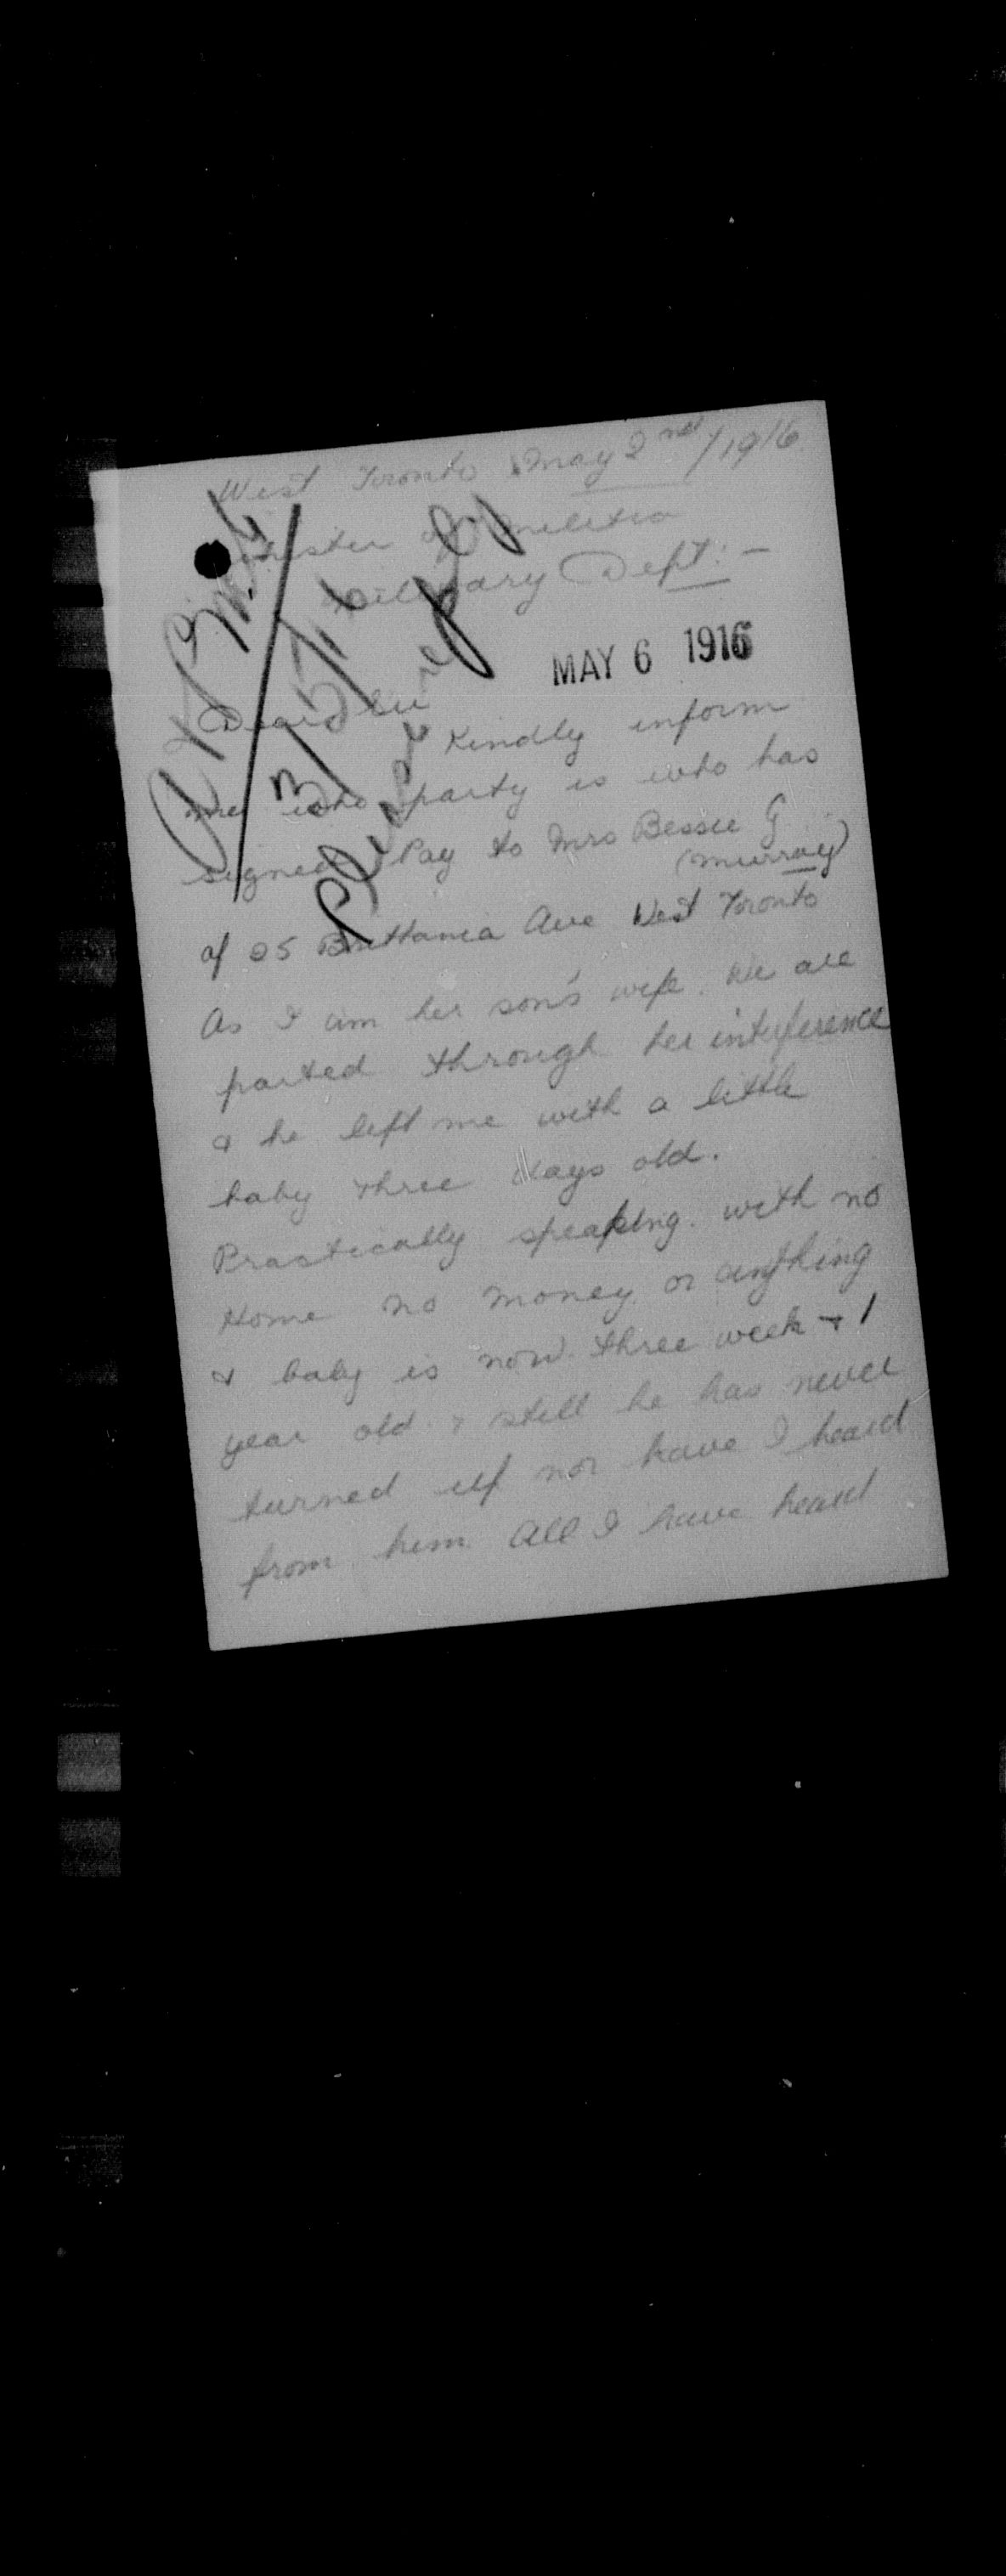 West Toronto May 2nd/1916.
Minister of Militia
Military Dept: -
MAY 6 1916
Dear Sir
Kindly inform
me who party is who has
signed Pay to Mrs Bessie G
(Murray)
of 25 Brittania Ave West Toronto
As I am her son's wife. We are
parted through her interference
& he left me with a little
baby three days old.
Practically speaking. with no
Home no money or anything
& baby is now three week + 1
year old & still he has never
turned up nor have I heard
from him. All I have heard